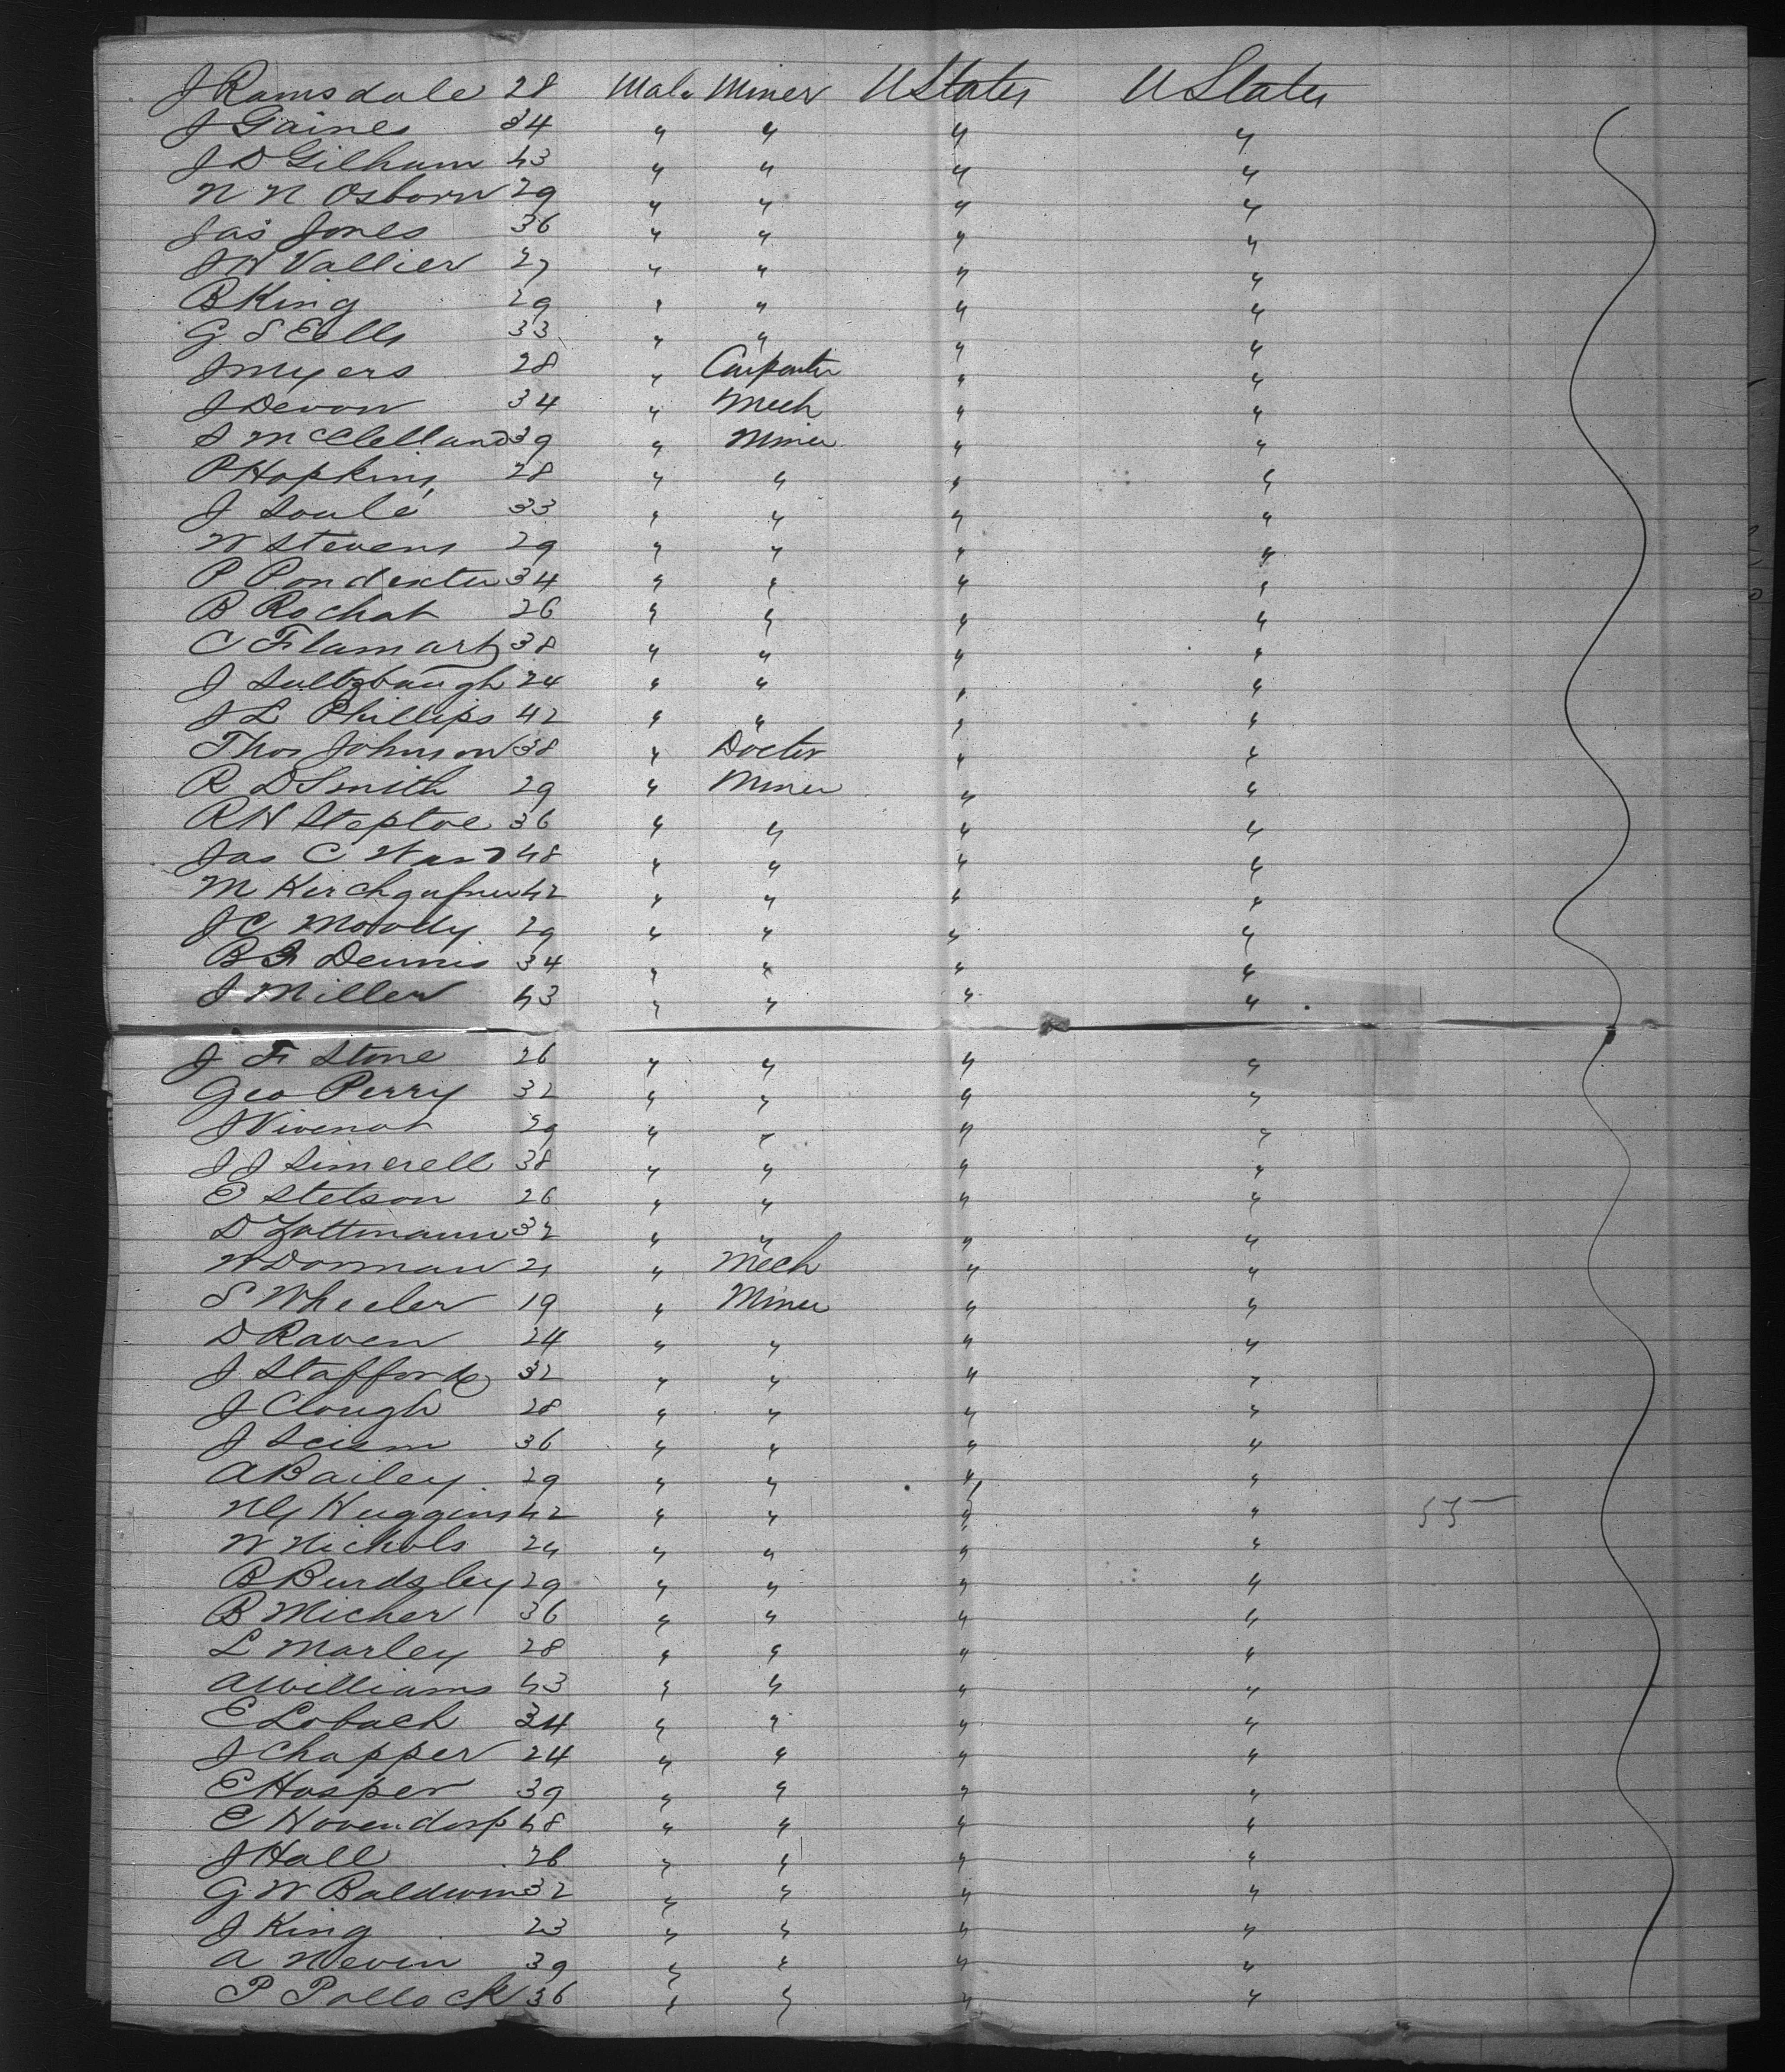 J Ramsdale 28 Male Miner U States U States
J Gaines 34 " " " "
J D Gilham 43 " " " "
N N Osborn 29 " " " "
Jas Jones 36 " " " "
J W Vallier 27 " " " "
B King 29 " " " "
G S Eells 33 " " " "
J Myers 28 " Carpenter " "
J Devon 34 " Mech " "
S McClelland 39 " Miner " "
P Hopkins 28 " " " "
J Soulé 33 " " " "
W Stevens 29 " " " "
P Pondexter 34 " " " "
B Rochat 26 " " " "
C Flamart 38 " " " "
J Sultzbaugh 24 " " " "
J L Phillips 42 " " " "
Thos Johnson 38 " Doctor " "
R D Smith 29 " Miner " "
R H Steptoe 36 " " " "
Jas C Ward 48 " " " "
M 42 " " " "
J C Moody 29 " " " "
B F Dennis 34 " " " "
J Miller 43 " " " "
J F Stone 26 " " " "
Geo Perry 32 " " " "
J Vivenot 29 " " " "
J J Simerell 38 " " " "
E Stetson 26 " " " "
D Zottmann 32 " " " "
W Dorman 21 " Mech " "
S Wheeler 19 " Miner " "
D Raven 24 " " " "
J Stafford 32 " " " "
J Clough 28 " " " "
J Scism 36 " " " "
A Bailey 29 " " " "
Huggins 42 " " " " 55
W Nichols 24 " " " "
B Burdsley 29 " " " "
B Micher 36 " " " "
L Marley 28 " " " "
A Williams 43 " " " "
E Lobach 34 " " " "
J Chapper 24 " " " "
E Hosper 39 " " " "
C Hovendorf 48 " " " "
J Hall 26 " " " "
G W Baldwin 32 " " " "
J King 23 " " " "
A Nevin 39 " " " "
P Pollock 36 " " " "